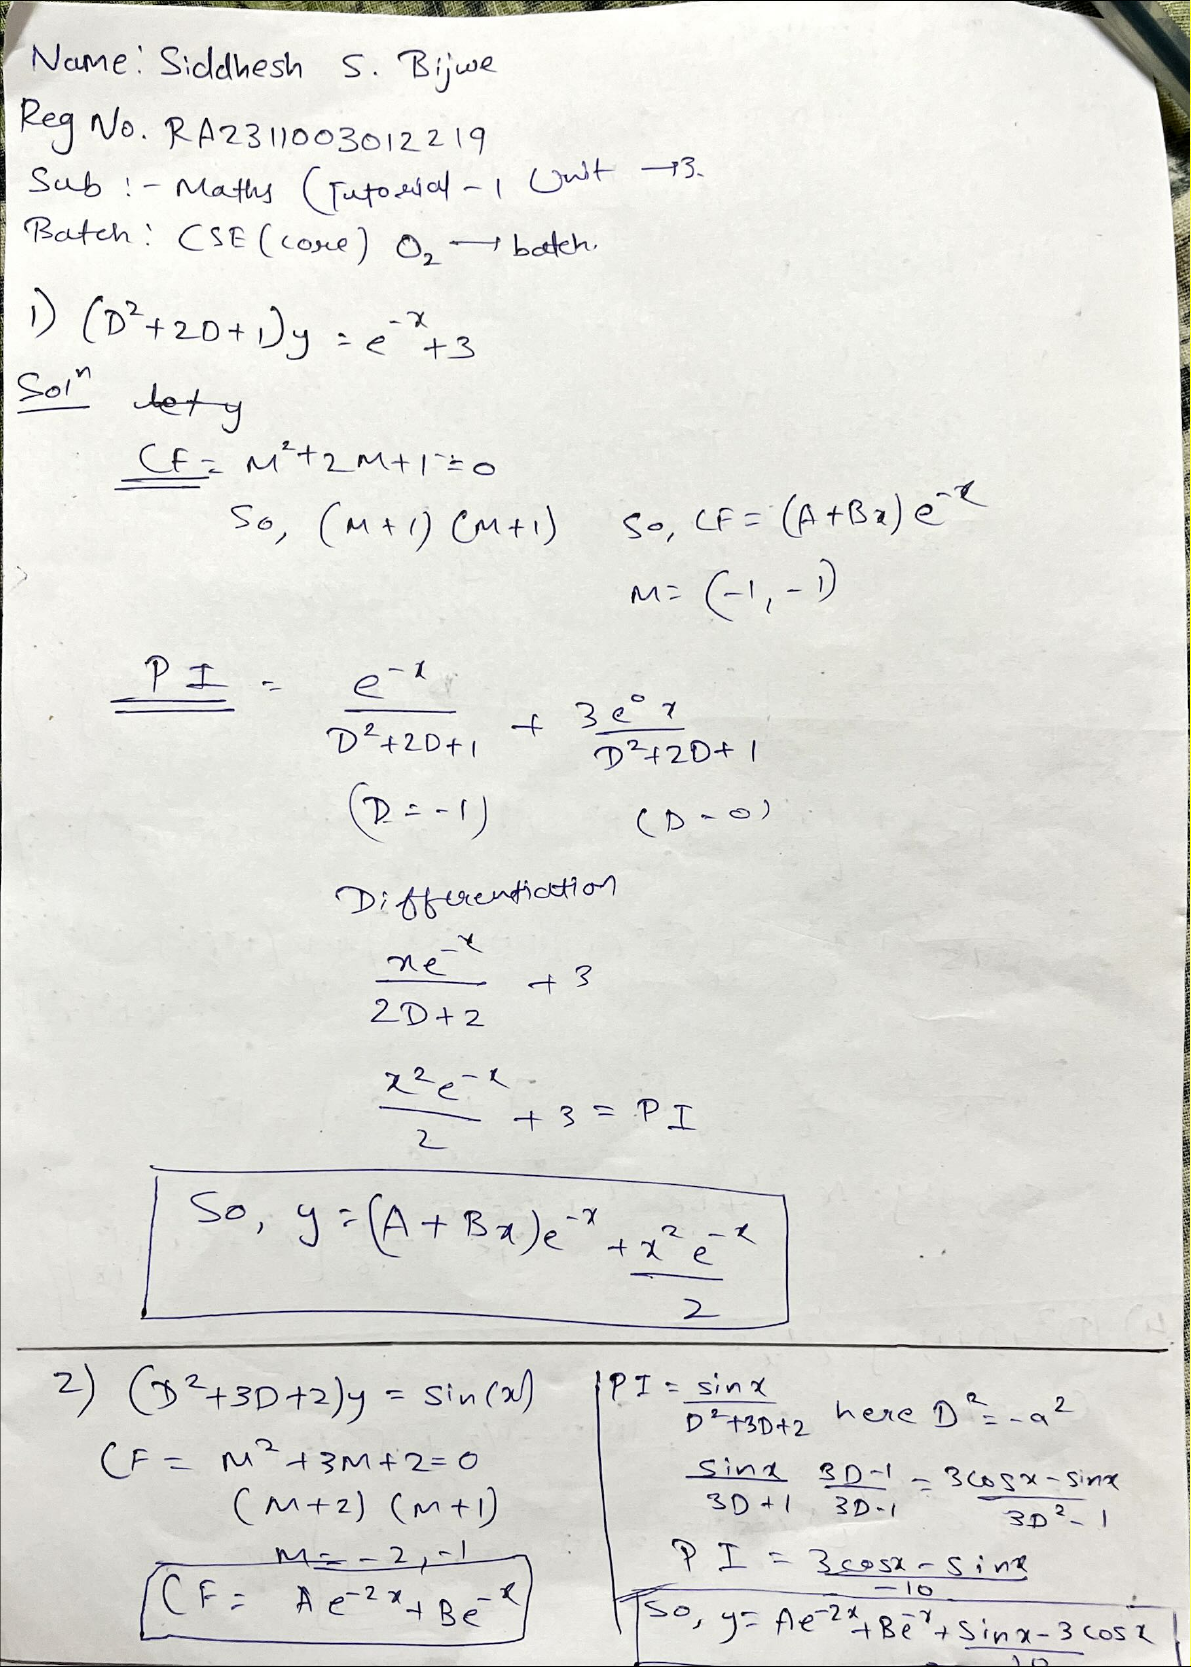 Name: Siddhesh S. Bijwe
Reg No. RA2311003012219
Sub :- Maths (Tutorial - 1 Unit → 3.
Batch: CSE (core) O₂ → batch.
1) (D²+2D+1)y = e⁻ˣ+3
Solⁿ let y
CF = M²+2M+1=0
So, (M+1) (M+1) So, CF = (A+Bx) e⁻ˣ
M= (-1,-1)
PI = e⁻ˣ/(D²+2D+1) + 3e⁰ˣ/(D²+2D+1)
(D=-1) (D=0)
Differentiation
xe⁻ˣ/(2D+2) + 3
x²e⁻ˣ/2 + 3 = PI
So, y = (A+Bx)e⁻ˣ + x²e⁻ˣ/2
2) (D²+3D+2)y = sin(x)
CF = M²+3M+2=0
(M+2) (M+1)
M= -2,-1
CF = Ae⁻²ˣ+Be⁻ˣ
PI = sinx/(D²+3D+2) here D²=-a²
sinx/(3D+1) (3D-1)/(3D-1) = (3cosx-sinx)/(3D²-1)
PI = (3cosx-sinx)/-10
So, y= Ae⁻²ˣ+Be⁻ˣ+(sinx-3cosx)/10